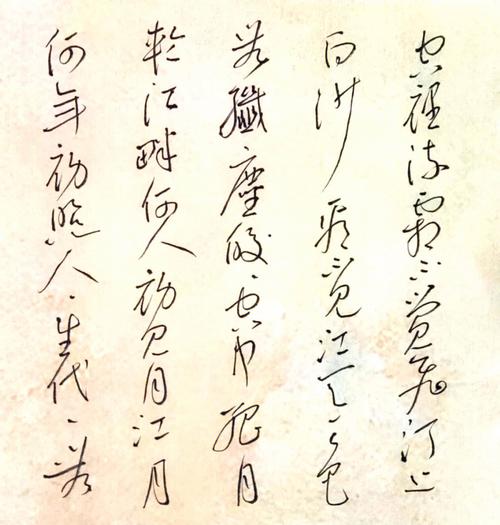 空裡流霜不覺飛汀上
白沙看不見江天一色
無纖塵皎〻空中孤月
輪江畔何人初見月江月
何年初照人〻生代〻無